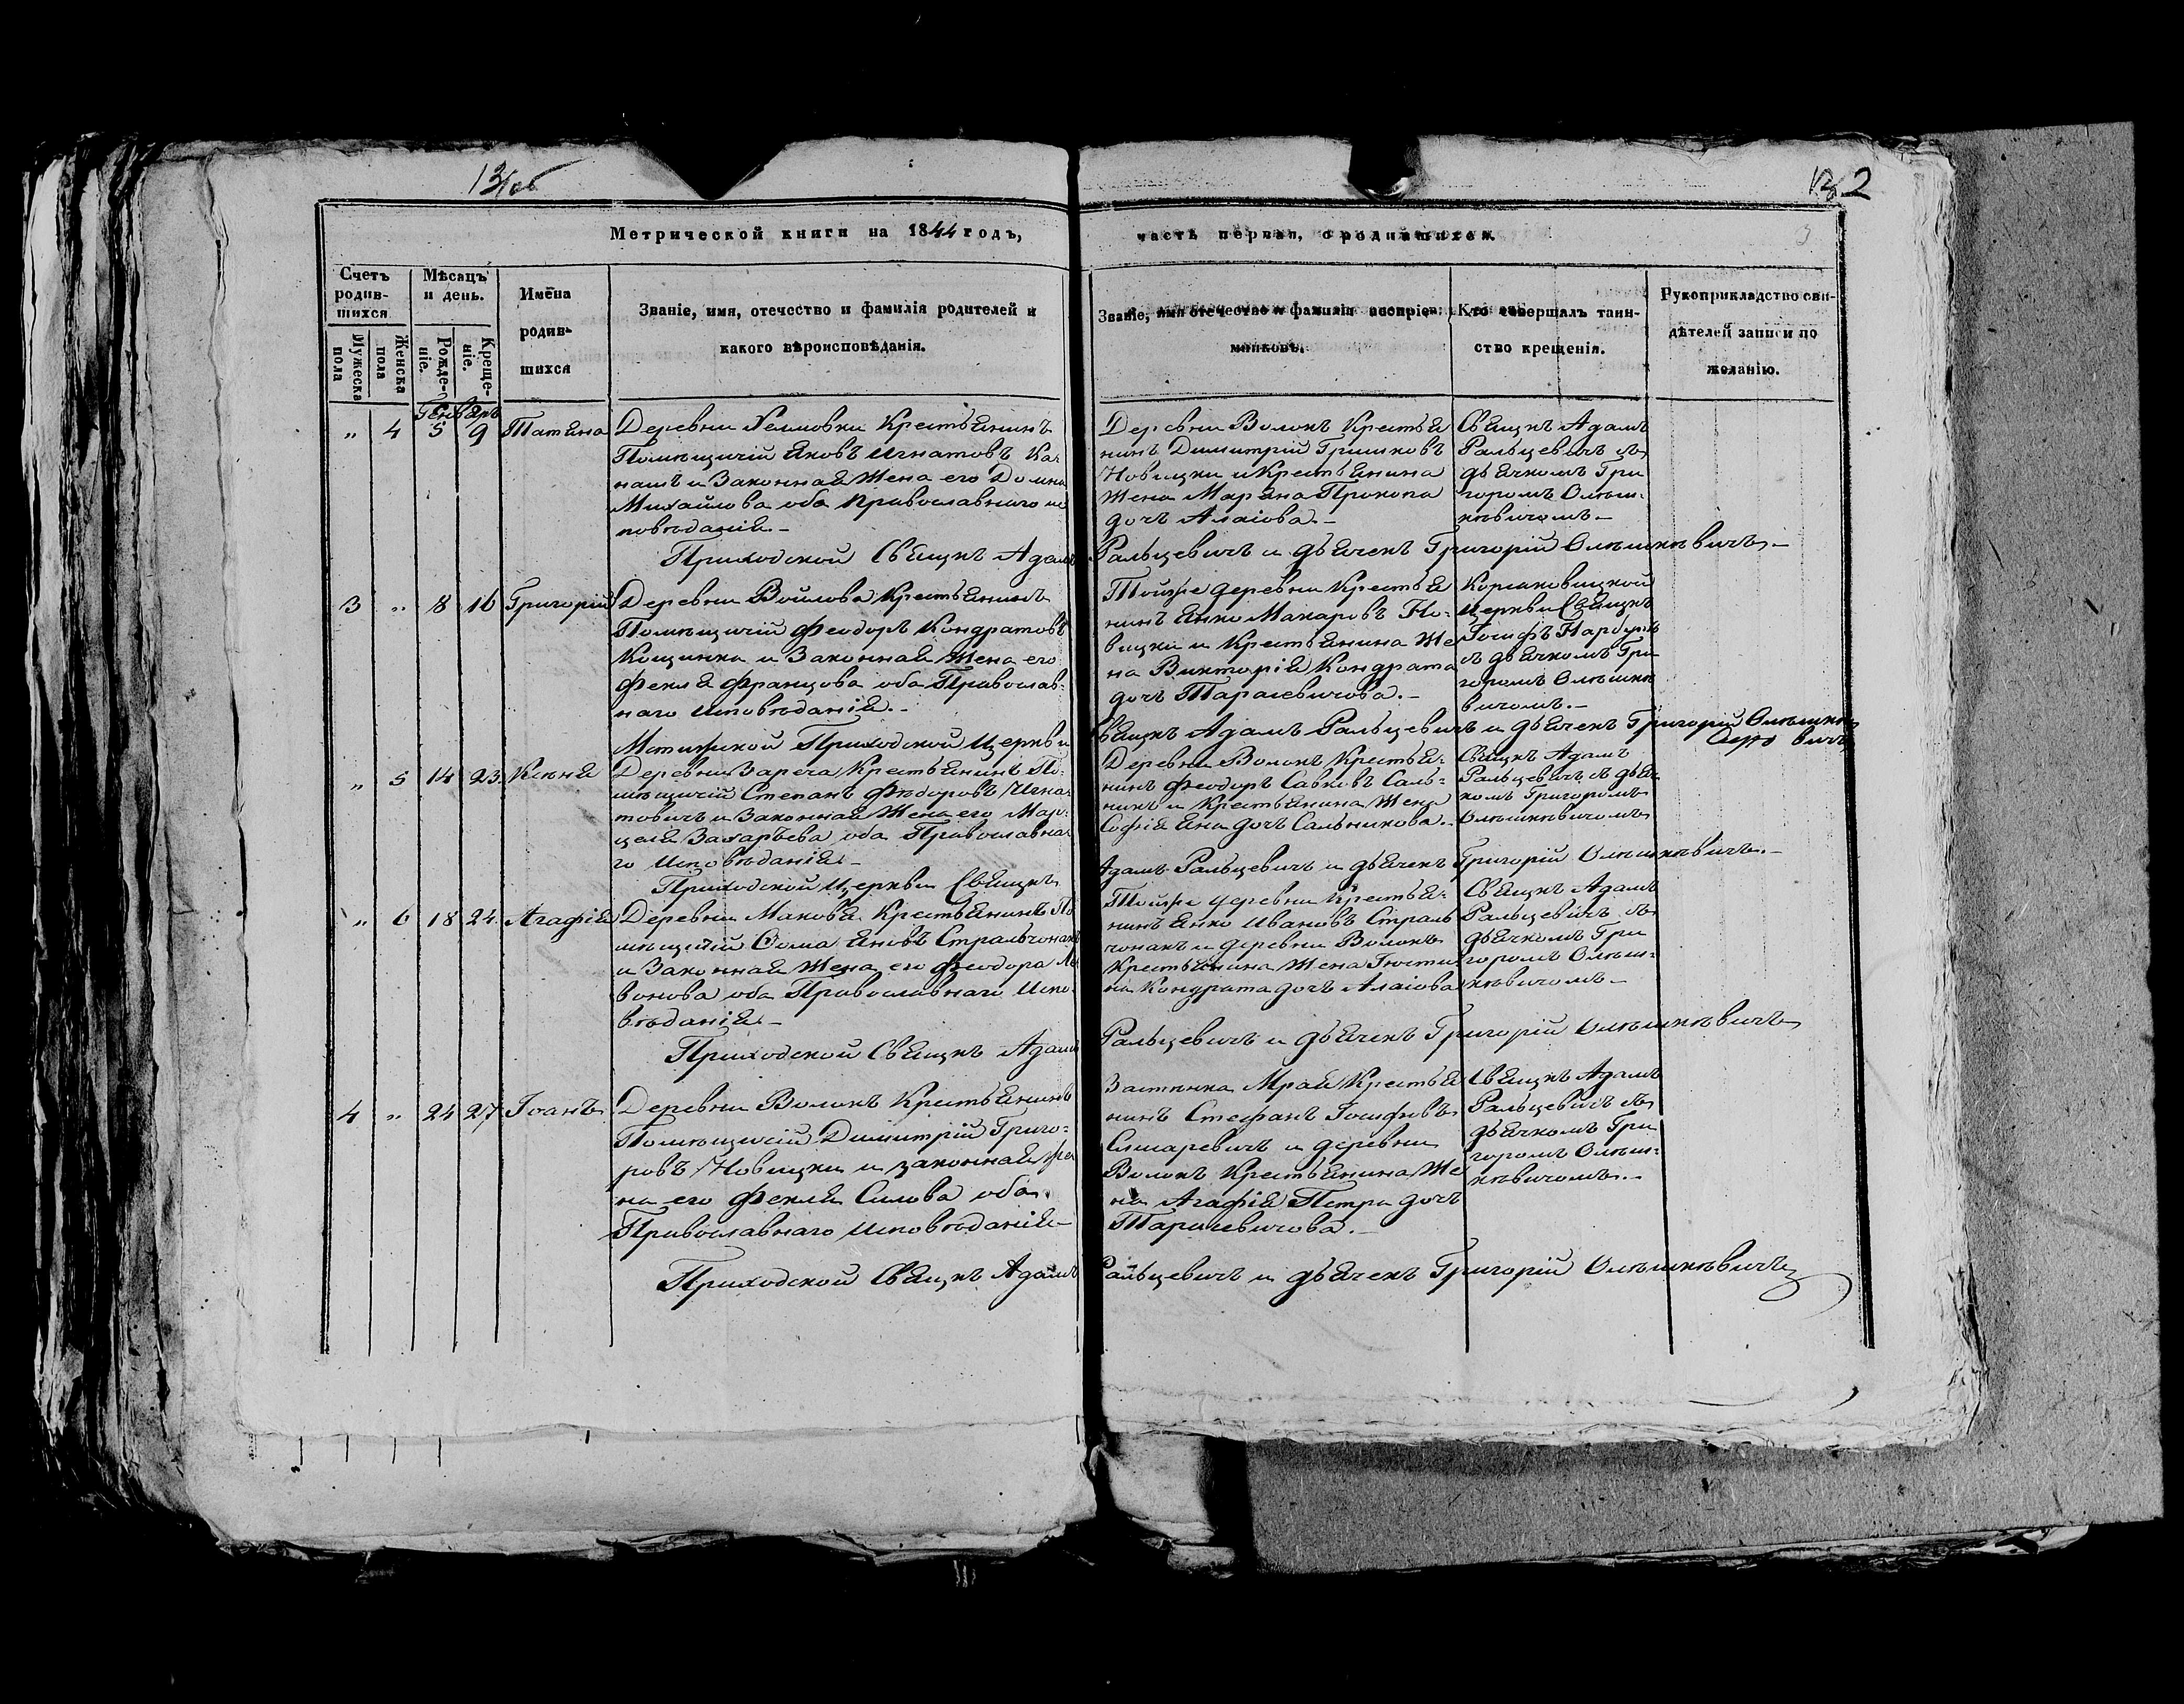 13/об
132
Метрической книги на 1844 годъ,
часть первая, о родившихся.
3
Счетъ родив-шихся
Мѣсяцъ и день.
Имёна родив-шихся
Званіе, имя, отечество и фамилія родителей и какого вѣроисповѣданія.
Званіе, имя отечество и фамилія воспріем-
никовъ.
Кто совершалъ таин-
ство крещенія.
Рукоприкладство сви-
дѣтелей записи по
желанію.
Мужеска пола
Женска пола
Рожде-ніе.
Креще-ніе.
Генваръ
„ 4 5 9 Татяна
Деревни Хеловки Крестьянинъ
Помѣщичій Яковъ Игнатовъ Ка-
нашъ и Законная Жена его Домна
Михайлова оба Православнаго ис
повѣданія.-
Деревни Волокъ Крестья
нинъ Димитрій Гришковъ
Новицки и Крестьянина
Жена Марьяна Прокопа
дочь Алаіова.-
Свящнъ Адамъ
Ральцевичъ съ
дьячкомъ Гри
горомъ Олѣш-
кѣвичомъ.-
Приходской Свящнъ Адамъ Ральцевичъ и дьячекъ Григорій Олѣшкѣвичъ.-
3 „ 8 16 Григорій
Деревни Войлова Крестьянинъ
Помѣщичій Феодоръ Кондратовъ
Кощинка и Законная Жена его
Фекля Францова оба Православ-
наго Исповѣданія.-
Тойже деревни Крестья
нинъ Янко Макаровъ Но-
вицки и Крестьянина Же
на Викторія Кондрата
дочь Тарасевичова.-
Корсаковицкой
Церкви Свящнъ
Іосифъ Нарбутъ
съ дьячкомъ Гри
горомъ Олѣшкѣ
вичомъ.-
Мстижской Приходской Церкви Свящнъ Адамъ Ральцевичъ и дьячекъ Григорій Олѣшкѣ
вичъ
„ 5 14 23. Ксѣня
Деревни Зареча Крестьянинъ По-
мѣщичій Степанъ Фѣдоровъ Игна-
товичъ и Законная Жена его Мар-
целя Захарьева оба Православна-
го Исповѣданія.-
Деревни Волокъ Крестья-
нинъ Феодоръ Савковъ Саль-
никъ и Крестьянина Жена
Софія Яна дочь Сальникова.-
Свящнъ Адамъ
Ральцевичъ съ дьяч-
комъ Григоромъ
Олѣшкѣвичомъ
Приходской Церкви Свящнъ Адамъ Ральцевичъ и дьячекъ Григорій Олѣшкѣвичъ.-
„ 6 18 24. Агафія
Деревни Маковя Крестьянинъ По
мѣщичій Сома Яновъ Стральчонакъ
и Законная Жена его Феодора Ле
вонова оба Православнаго Испо-
вѣданія.-
Тойже деревни Крестья-
нинъ Янко Ивановъ Страль
чонакъ и деревни Волокъ
Крестьянина Жена Іюсти
на Кондрата дочь Алаіова
Свящнъ Адамъ
Ральцевичъ съ
дьячкомъ Гри
горомъ Олѣш-
кѣвичомъ-
Приходской Свящнъ Адамъ Ральцевичъ и дьячекъ Григорій Олѣшкѣвичъ
4 „ 24 27 Іоанъ
Деревни Волокъ Крестьянинъ
Помѣщичій Димитрій Григо-
ровъ Новицки и законная Же
на его Фекля Силова оба
Православнаго Исповѣданія-
Застѣнка Мрай Крестья
нинъ Стефанъ Іосифовъ
Слицаревичъ и деревни
Волокъ Крестьянина Же
на Агафія Петра дочь
Тарасевичова.-
Свящнъ Адамъ
Ральцевичъ съ
дьячкомъ Гри
горомъ Олѣш-
кѣвичомъ.-
Приходской Свящнъ Адамъ Ральцевичъ и дьячекъ Григорій Олѣшкѣвичъ